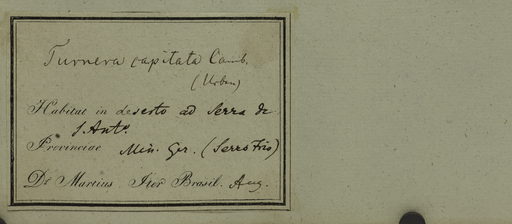 Turnera capitata Camb.
(Urban)
Habitat in deserto ad Serra de
S. Anto
Provinciae Min. Ger. (Serro Frio)
Dr. Martius. Iter Brasil. Aug.